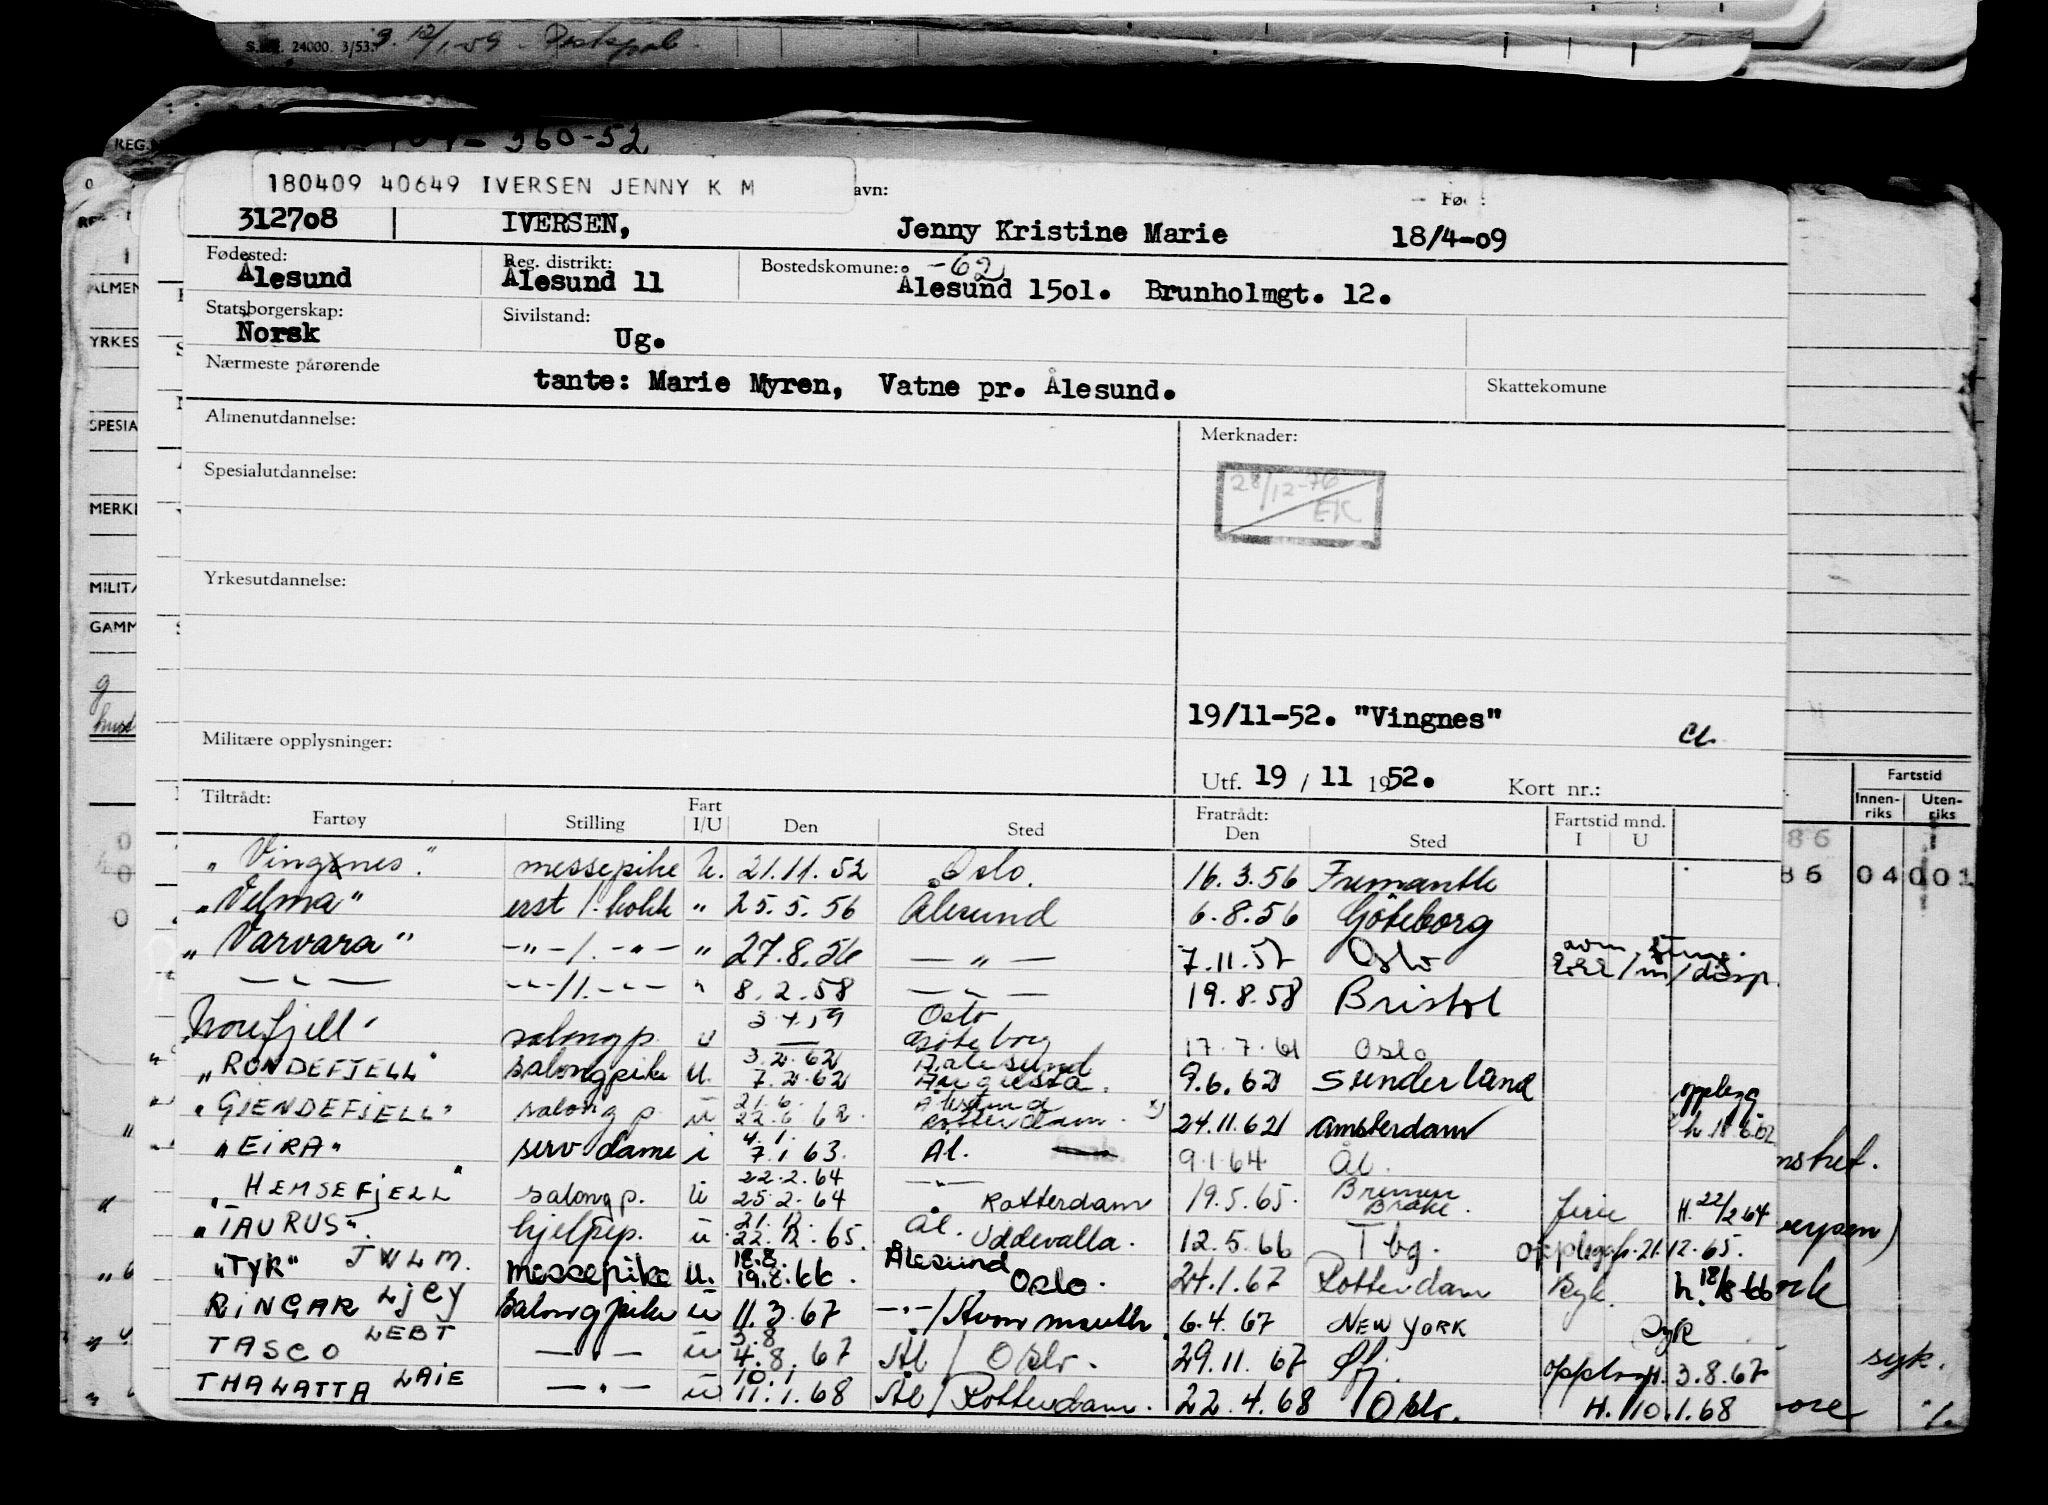 S. 24000. 3/53.
360-52
REG.
180409 40649 IVERSEN JENNY K M avn: Fø
312708 IVERSEN, Jenny Kristine Marie 18/4-09
Fødested: Reg. distrikt: Bostedskomune: -62
Ålesund Ålesund 11 Ålesund 1501. Brunholmgt. 12.
Statsborgerskap: Sivilstand:
Norsk Ug.
Nærmeste pårørende Skattekomune
tante: Marie Myren, Vatne pr. Ålesund.
Almenutdannelse: Merknader:
Spesialutdannelse: 28/12-76 EK
Yrkesutdannelse:
19/11-52. "Vingnes"
Militære opplysninger:
Utf. 19 / 11 1952. Kort nr.:
Tiltrådt: Fratrådt:
Fartøy Stilling Fart I/U Den Sted Den Sted Fartstid mnd. I U
"Vingnes" messepike u. 21.11.52 Oslo. 16.3.56 Fremantle
"Velma" erst 1. kokk " 25.5.56 Ålesund 6.8.56 Göteborg
"Varvara" -"-/.-"- " 27.8.56 -"- 7.11.57 Oslo
-"- -"-/1.-"- " 8.2.58 -"- 19.8.58 Bristol
Norefjell salongp. u 3.4.59 Oslo Göteborg 17.7.61 Oslo
"RONDEFJELL" salongpike u. 3.2.62 7.2.62 Aalesund Augusta. 9.6.62 Sunderland opplegg
"GJENDEFJELL" salong p. u 21.6. 22.6.62 Ålesund Rotterdam. 24.11.62 Amsterdam
"EIRA" serv dame i 4.1. 7.1.63. Ål. 9.1.64 Ål.
"HEMSEFJELL" salongp. u 22.2.64 25.2.64 -"- Rotterdam 19.5.65. Bremen Brake. ferie H. 22/2 64
"TAURUS". hjelpep. u 21.12. 22.12.65. Ål. Uddevalla. 12.5.66 Tbg. opplegg h. 21.12.65.
"TYR" JWLM. messepike u. 18.8. 19.8.66. Ålesund Oslo. 24.1.67 Rotterdam Syk. h. 18/8-66
RINGAR LJCY Salongpike u 11.3.67 -"-/Avonmouth 6.4.67 NEW YORK Syk
TASCO LEBT -"- u 3.8 4.8.67 Ål / Oslo. 29.11.67 Sfj. oppl H. 3.8.67
THALATTA LAIE -"- u 10.1 11.1.68 Ål/Rotterdam. 22.4.68 Oslo. H. 10.1.68
ALMEN
YRKES
SPESIA
MERK
MILIT
GAMM
Fartstid
Innenriks Utenriks
86
86 04 001
syk.